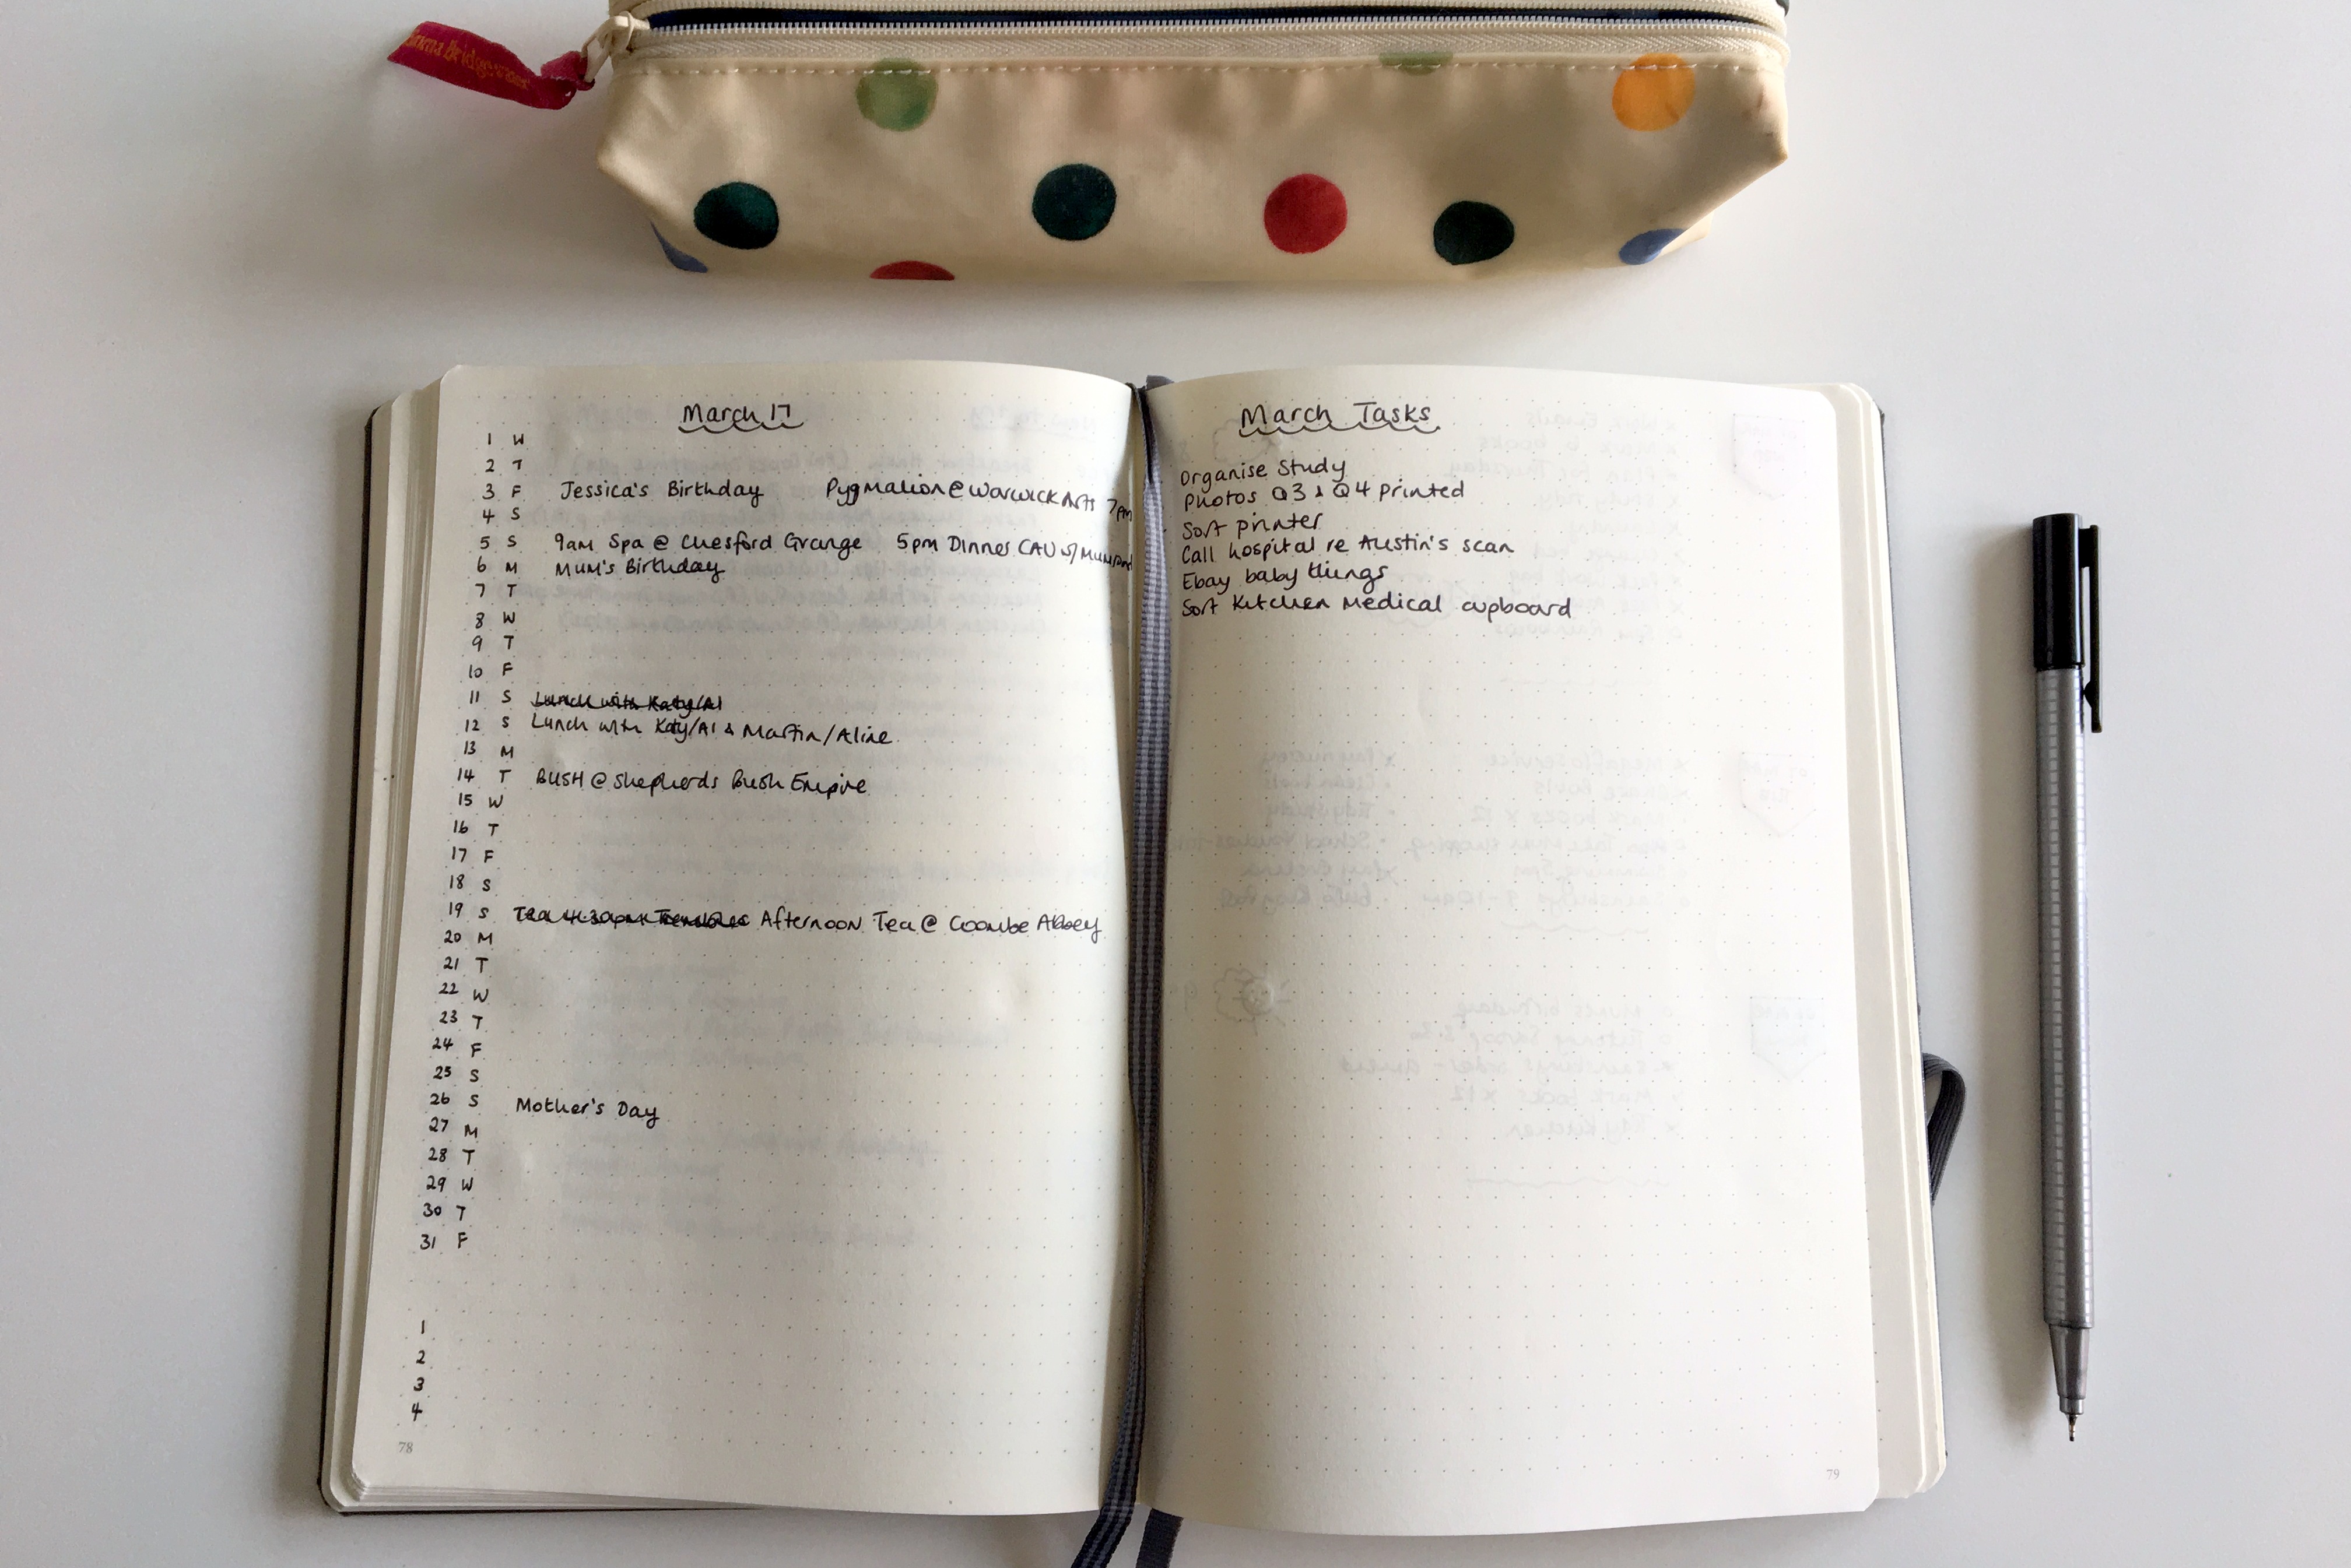 Emma Bridgewater
March 17
1 W
2 T
3 F Jessica's Birthday Pygmalion @ Warwick Arts 7pm
4 S
5 S 9am Spa @ Chesford Grange 5pm Dinner CAU w/ Mum
6 M Mum's Birthday
7 T
8 W
9 T
10 F
11 S Lunch with Katy/Al
12 S Lunch with Katy/Al & Martin/Aline
13 M
14 T BUSH @ Shepherds Bush Empire
15 W
16 T
17 F
18 S
19 S Tea 4:30pm Afternoon Tea @ Coombe Abbey
20 M
21 T
22 W
23 T
24 F
25 S
26 S Mother's Day
27 M
28 T
29 W
30 T
31 F
1
2
3
4
78
March Tasks
Organise Study
Photos Q3 & Q4 printed
Sort printer
Call hospital re Austin's scan
Ebay baby things
Sort Kitchen Medical cupboard
79